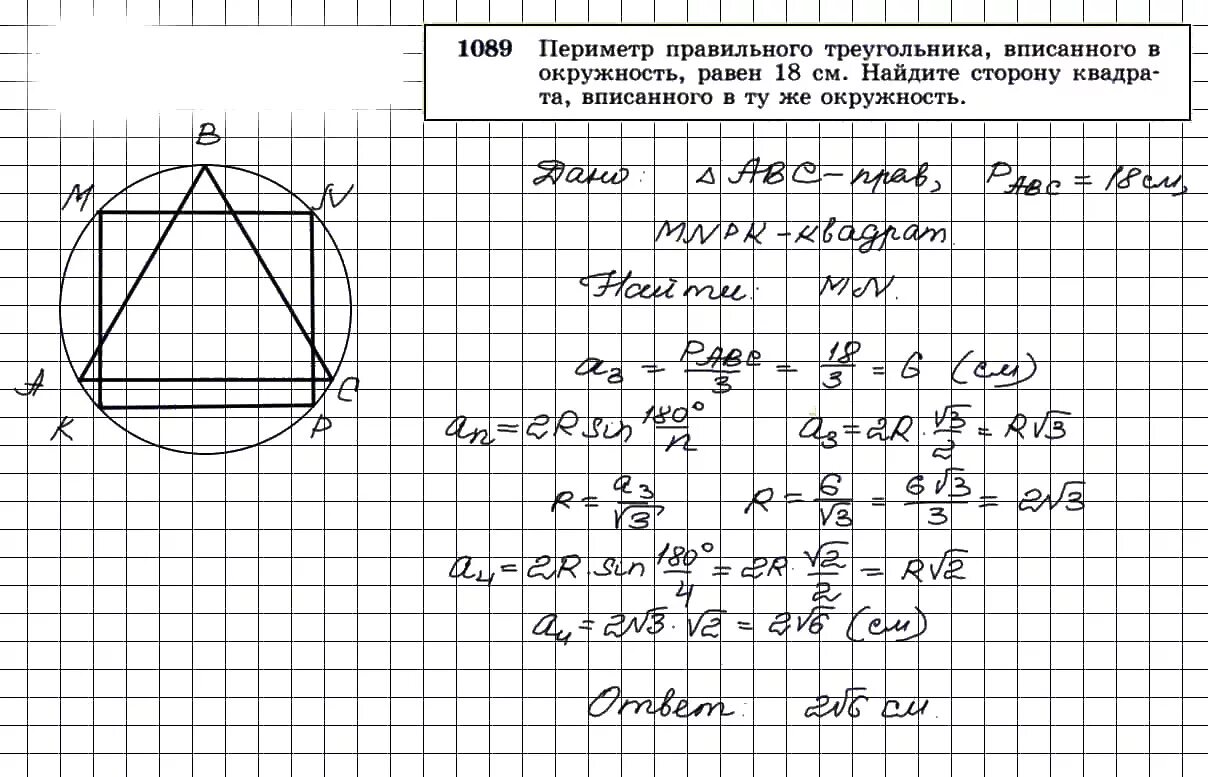 1089 Периметр правильного треугольника, вписанного в
окружность, равен 18 см. Найдите сторону квадра-
та, вписанного в ту же окружность.
B
M
N
A
C
K
P
Дано: △ ABC - прав, P_ABC = 18 см,
MNPK - квадрат.
Найти: MN.
a₃ = P_ABC/3 = 18/3 = 6 (см)
aₙ = 2R sin 180°/n a₃ = 2R · √3/2 = R√3
R = a₃/√3 R = 6/√3 = 6√3/3 = 2√3
a₄ = 2R · sin 180°/4 = 2R · √2/2 = R√2
a₄ = 2√3 · √2 = 2√6 (см)
Ответ: 2√6 см.